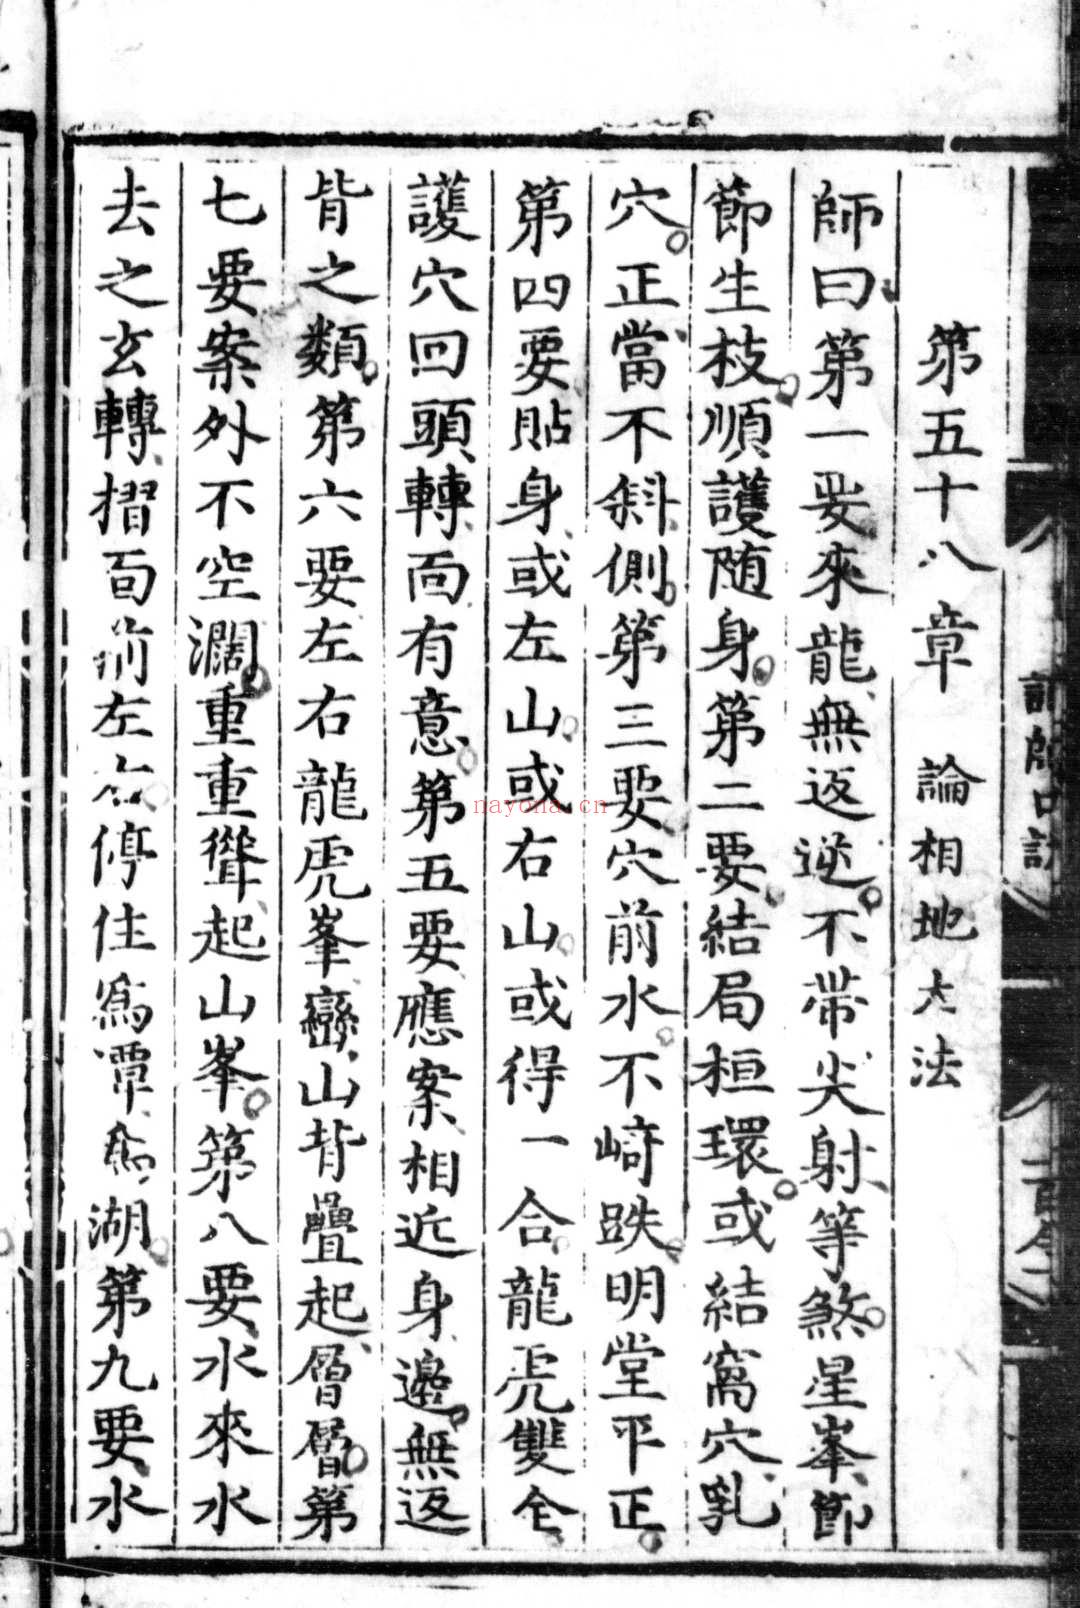 第五十八章 論相地大法
師曰第一要來龍無返逆不帶尖射等煞星峯節
節生枝順護随身第二要結局桓環或結窩穴乳
穴正當不斜側第三要穴前水不崎跌明堂平正
第四要貼身或左山或右山或得一合龍虎雙全
護穴回頭轉面有意第五要應案相近身邊無返
背之類第六要左右龍虎峯巒山背疊起層層第
七要案外不空濶重重聳起山峯第八要水來水
去之玄轉摺面前左右停住為潭為湖第九要水
nayona.cn